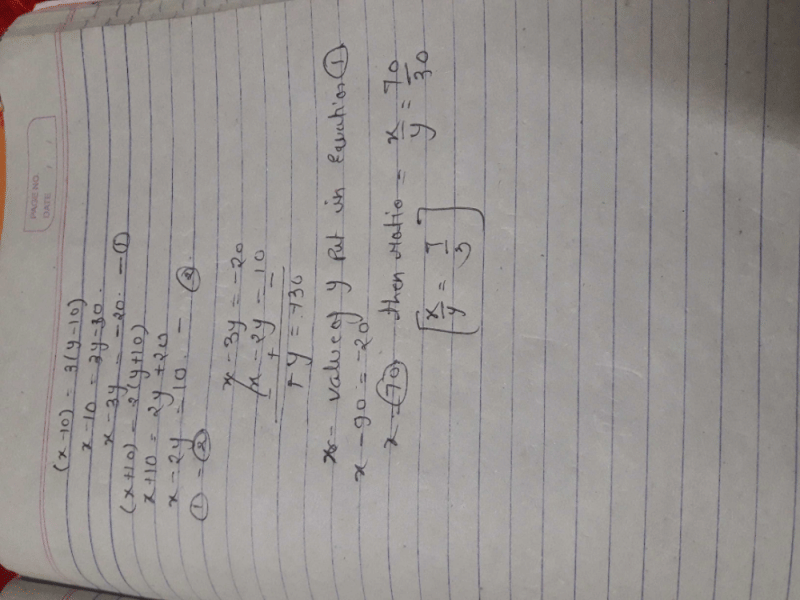 PAGE NO.
DATE
(x-10) = 3(y-10)
x-10 = 3y-30.
x-3y = -20. -①
(x+10) = 2(y+10)
x+10 = 2y+20
x-2y = 10. - ②
① - ②
x-3y = -20
x-2y = 10
- + -
+y = +30
value of y put in Equation ①
x-90 = -20
x = 70 then ratio = x/y = 70/30
[x/y = 7/3]